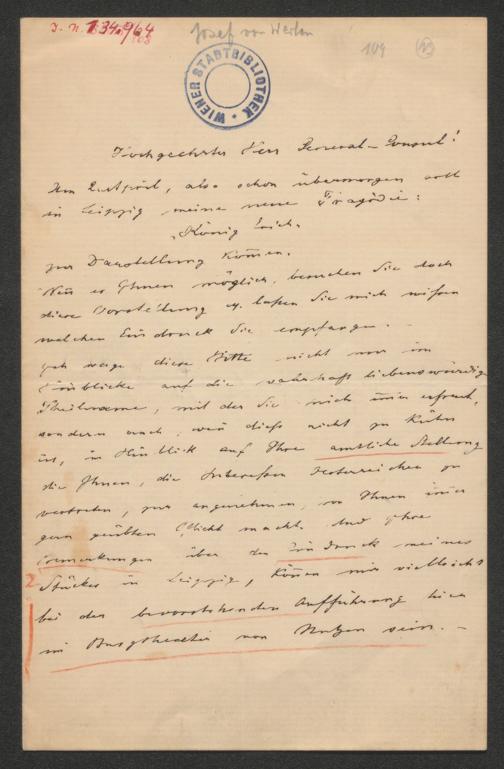 J. N. 134.964
Josef von Weilen
109
WIENER STADTBIBLIOTHEK
Hochgeehrter Herr General-Consul!
Am 2. April, also schon übermorgen soll
in Leipzig meine neue Tragödie:
„König Erich"
zur Darstellung kommen.
Wenn es Ihnen möglich, besuchen Sie doch
diese Vorstellung u. laßen Sie mich wissen
welchen Eindruck Sie empfangen. –
Ich wage diese Bitte nicht nur im
Hinblicke auf die wahrhaft liebenswürdige
Theilname, mit der Sie mich erfreut,
sondern auch, wenn dieß nicht zu kühn
ist, in Hinblick auf Ihre amtliche Stellung
die Ihnen, die Interessen Oesterreicher zu
vertreten, zur angenehmen, von Ihnen immer
gern geübten Pflicht macht. Und Ihre
Bemerkungen über den Eindruck meines
Stückes in Leipzig, können mir vielleicht
bei der bevorstehenden Aufführung hier
im Burgtheater von Nutzen sein. –